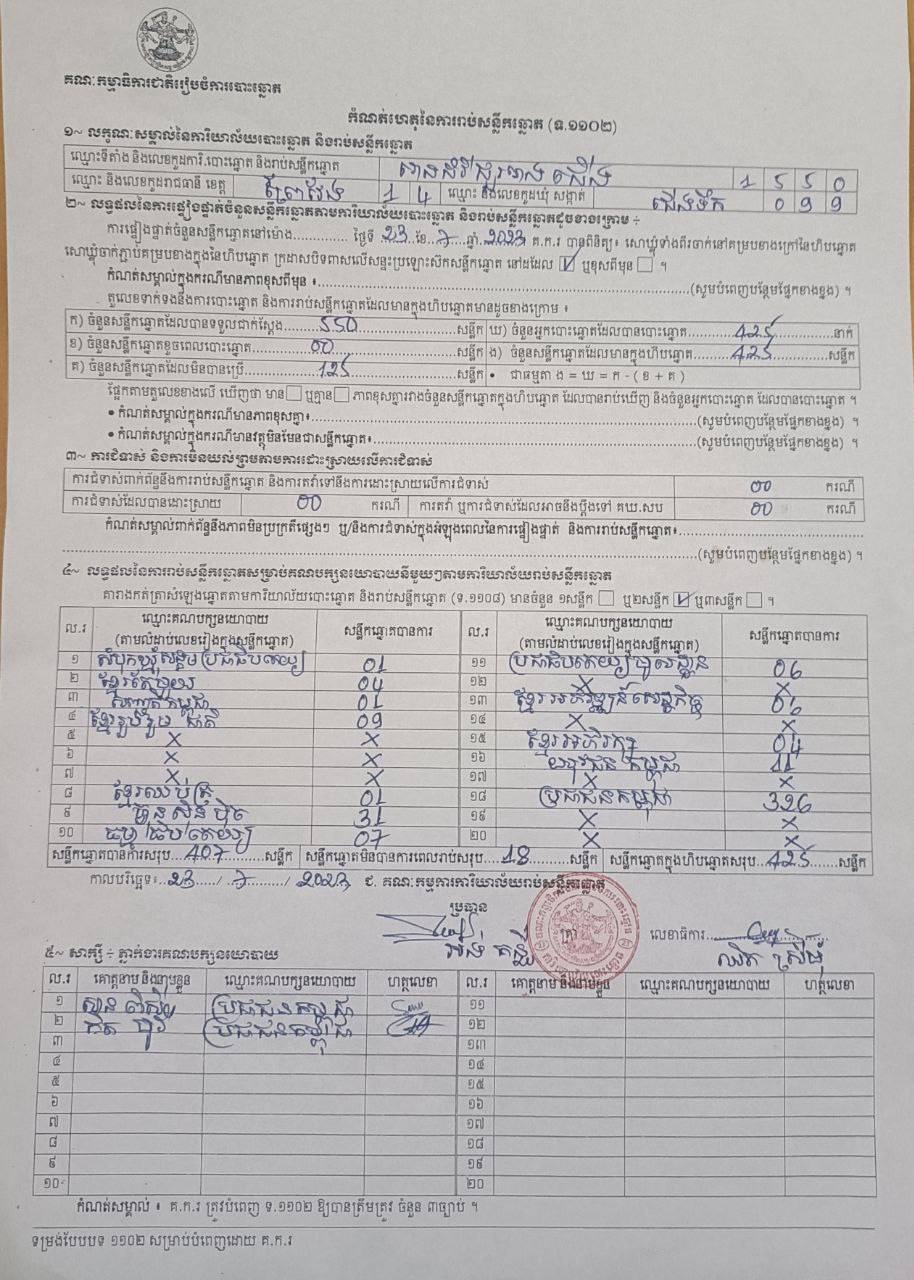 គណៈកម្មាធិការជាតិរៀបចំការបោះឆ្នោត
កំណត់ហេតុនៃការរាប់សន្លឹកឆ្នោត (ទ.១១០២)
១~ លក្ខណៈសម្គាល់នៃការិយាល័យបោះឆ្នោត និងរាប់សន្លឹកឆ្នោត
ឈ្មោះទីតាំង និងលេខកូដការិ.បោះឆ្នោត និងរាប់សន្លឹកឆ្នោត 1 5 5 0
ឈ្មោះ និងលេខកូដរាជធានី ខេត្ត ព្រៃវែង 1 4 ឈ្មោះ និងលេខកូដឃុំ សង្កាត់ ជើងទឹក 0 9 9
២~ លទ្ធផលនៃការផ្ទៀងផ្ទាត់ចំនួនសន្លឹកឆ្នោតតាមការិយាល័យបោះឆ្នោត និងរាប់សន្លឹកឆ្នោតដូចខាងក្រោម ÷
ការផ្ទៀងផ្ទាត់ចំនួនសន្លឹកឆ្នោតនៅម៉ោង.............. ថ្ងៃទី 23 ខែ 7 ឆ្នាំ 2023 គ.ក.រ បានពិនិត្យ៖ សោឃ្មុំទាំងពីរចាក់នៅគម្របខាងក្រៅនៃហិបឆ្នោត
សោឃ្មុំចាក់ភ្ជាប់គម្របខាងក្នុងនៃហិបឆ្នោត ក្រដាសបិទពាសលើសន្ទះប្រឡោះស៊កសន្លឹកឆ្នោត នៅដដែល ☑ ឬខុសពីមុន ☐ ។
កំណត់សម្គាល់ក្នុងករណីមានភាពខុសពីមុន ៖..............(សូមបំពេញបន្ថែមផ្នែកខាងខ្នង) ។
តួលេខទាក់ទងនឹងការបោះឆ្នោត និងការរាប់សន្លឹកឆ្នោតដែលមានក្នុងហិបឆ្នោតមានដូចខាងក្រោម ៖
ក) ចំនួនសន្លឹកឆ្នោតដែលបានទទួលជាក់ស្តែង 550 សន្លឹក ឃ) ចំនួនអ្នកបោះឆ្នោតដែលបានបោះឆ្នោត 425 នាក់
ខ) ចំនួនសន្លឹកឆ្នោតខូចពេលបោះឆ្នោត 00 សន្លឹក ង) ចំនួនសន្លឹកឆ្នោតដែលមានក្នុងហិបឆ្នោត 425 សន្លឹក
គ) ចំនួនសន្លឹកឆ្នោតដែលមិនបានប្រើ 125 សន្លឹក • ជាធម្មតា ង = ឃ = ក - ( ខ + គ )
ផ្អែកតាមតួលេខខាងលើ ឃើញថា មាន☐ ឬគ្មាន☐ ភាពខុសគ្នារវាងចំនួនសន្លឹកឆ្នោតក្នុងហិបឆ្នោត ដែលបានរាប់ឃើញ និងចំនួនអ្នកបោះឆ្នោត ដែលបានបោះឆ្នោត ។
• កំណត់សម្គាល់ក្នុងករណីមានភាពខុសគ្នា៖..............(សូមបំពេញបន្ថែមផ្នែកខាងខ្នង) ។
• កំណត់សម្គាល់ក្នុងករណីមានវត្ថុមិនមែនជាសន្លឹកឆ្នោត៖..............(សូមបំពេញបន្ថែមផ្នែកខាងខ្នង) ។
៣~ ការជំទាស់ និងការមិនយល់ព្រមតាមការដោះស្រាយលើការជំទាស់
ការជំទាស់ពាក់ព័ន្ធនឹងការរាប់សន្លឹកឆ្នោត និងការតវ៉ាទៅនឹងការដោះស្រាយលើការជំទាស់ 00 ករណី
ការជំទាស់ដែលបានដោះស្រាយ 00 ករណី ការតវ៉ា ឬការជំទាស់ដែលអាចនឹងប្តឹងទៅ គឃ.សប 00 ករណី
កំណត់សម្គាល់ពាក់ព័ន្ធនឹងភាពមិនប្រក្រតីផ្សេងៗ ឬ/និងការជំទាស់ក្នុងអំឡុងពេលនៃការផ្ទៀងផ្ទាត់ និងការរាប់សន្លឹកឆ្នោត៖..............
..............(សូមបំពេញបន្ថែមផ្នែកខាងខ្នង) ។
៤~ លទ្ធផលនៃការរាប់សន្លឹកឆ្នោតសម្រាប់គណបក្សនយោបាយនីមួយៗតាមការិយាល័យរាប់សន្លឹកឆ្នោត
តារាងកត់ត្រាសំឡេងឆ្នោតតាមការិយាល័យបោះឆ្នោត និងរាប់សន្លឹកឆ្នោត (ទ.១១០៨) មានចំនួន ១សន្លឹក ☐ ឬ២សន្លឹក ☑ ឬ៣សន្លឹក ☐ ។
ល.រ ឈ្មោះគណបក្សនយោបាយ (តាមលំដាប់លេខរៀងក្នុងសន្លឹកឆ្នោត) សន្លឹកឆ្នោតបានការ ល.រ ឈ្មោះគណបក្សនយោបាយ (តាមលំដាប់លេខរៀងក្នុងសន្លឹកឆ្នោត) សន្លឹកឆ្នោតបានការ
១ សំបុកឃ្មុំសង្គមប្រជាធិបតេយ្យ 01 ១១ ប្រជាធិបតេយ្យមូលដ្ឋាន 06
២ ខ្មែរតែមួយ 04 ១២ X X
៣ កម្ពុជា 01 ១៣ ខ្មែរអភិវឌ្ឍន៍សេដ្ឋកិច្ច 06
៤ ខ្មែររួបរួមជាតិ 09 ១៤ X X
៥ X X ១៥ ខ្មែរអភិរក្ស 04
៦ X X ១៦ យុវជនកម្ពុជា 11
៧ X X ១៧ X X
៨ ខ្មែរឈប់ក្រ 01 ១៨ ប្រជាជនកម្ពុជា 326
៩ ហ៊្វុនស៊ិនប៉ិច 31 ១៩ X X
១០ ធម្មាធិបតេយ្យ 07 ២០ X X
សន្លឹកឆ្នោតបានការសរុប 407 សន្លឹក សន្លឹកឆ្នោតមិនបានការពេលរាប់សរុប 18 សន្លឹក សន្លឹកឆ្នោតក្នុងហិបឆ្នោតសរុប 425 សន្លឹក
កាលបរិច្ឆេទ៖ 23 / 7 / 2023 ជ. គណៈកម្មការការិយាល័យរាប់សន្លឹកឆ្នោត
ប្រធាន
លេខាធិការ
៥~ សាក្សី ÷ ភ្នាក់ងារគណបក្សនយោបាយ
ល.រ គោត្តនាម និងនាមខ្លួន ឈ្មោះគណបក្សនយោបាយ ហត្ថលេខា ល.រ គោត្តនាម និងនាមខ្លួន ឈ្មោះគណបក្សនយោបាយ ហត្ថលេខា
១ ប្រជាជនកម្ពុជា ១១
២ ប្រជាជនកម្ពុជា ១២
៣ ១៣
៤ ១៤
៥ ១៥
៦ ១៦
៧ ១៧
៨ ១៨
៩ ១៩
១០ ២០
កំណត់សម្គាល់ ៖ គ.ក.រ ត្រូវបំពេញ ទ.១១០២ ឱ្យបានត្រឹមត្រូវ ចំនួន ៣ច្បាប់ ។
ទម្រង់បែបបទ ១១០២ សម្រាប់បំពេញដោយ គ.ក.រ